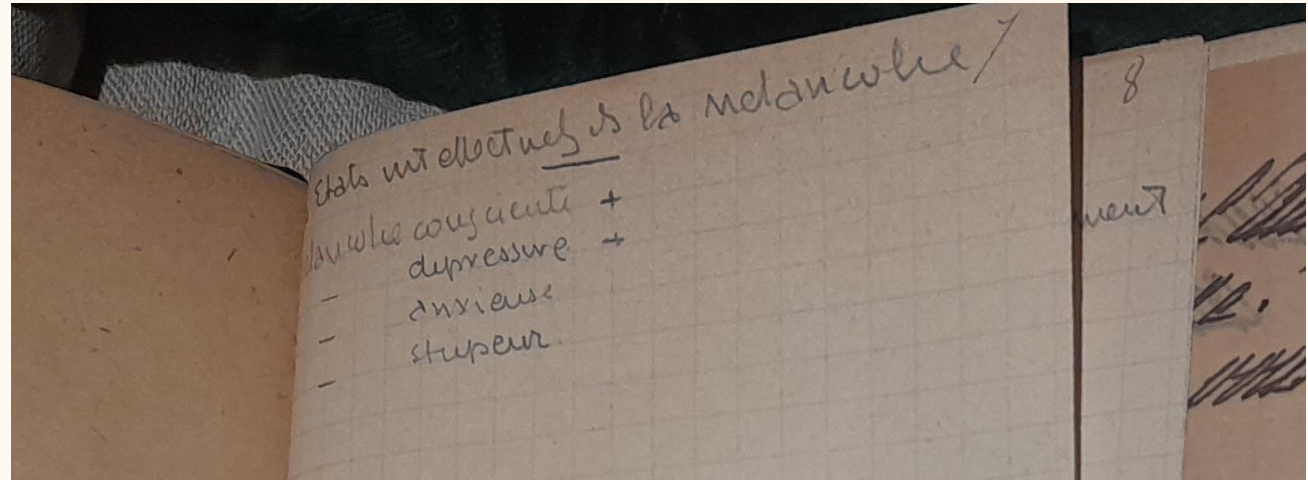 Etats intellectuels ds la melancolie 7
lancolie consciente +
- depressive +
- anxieuse
- stupeur
8
ment